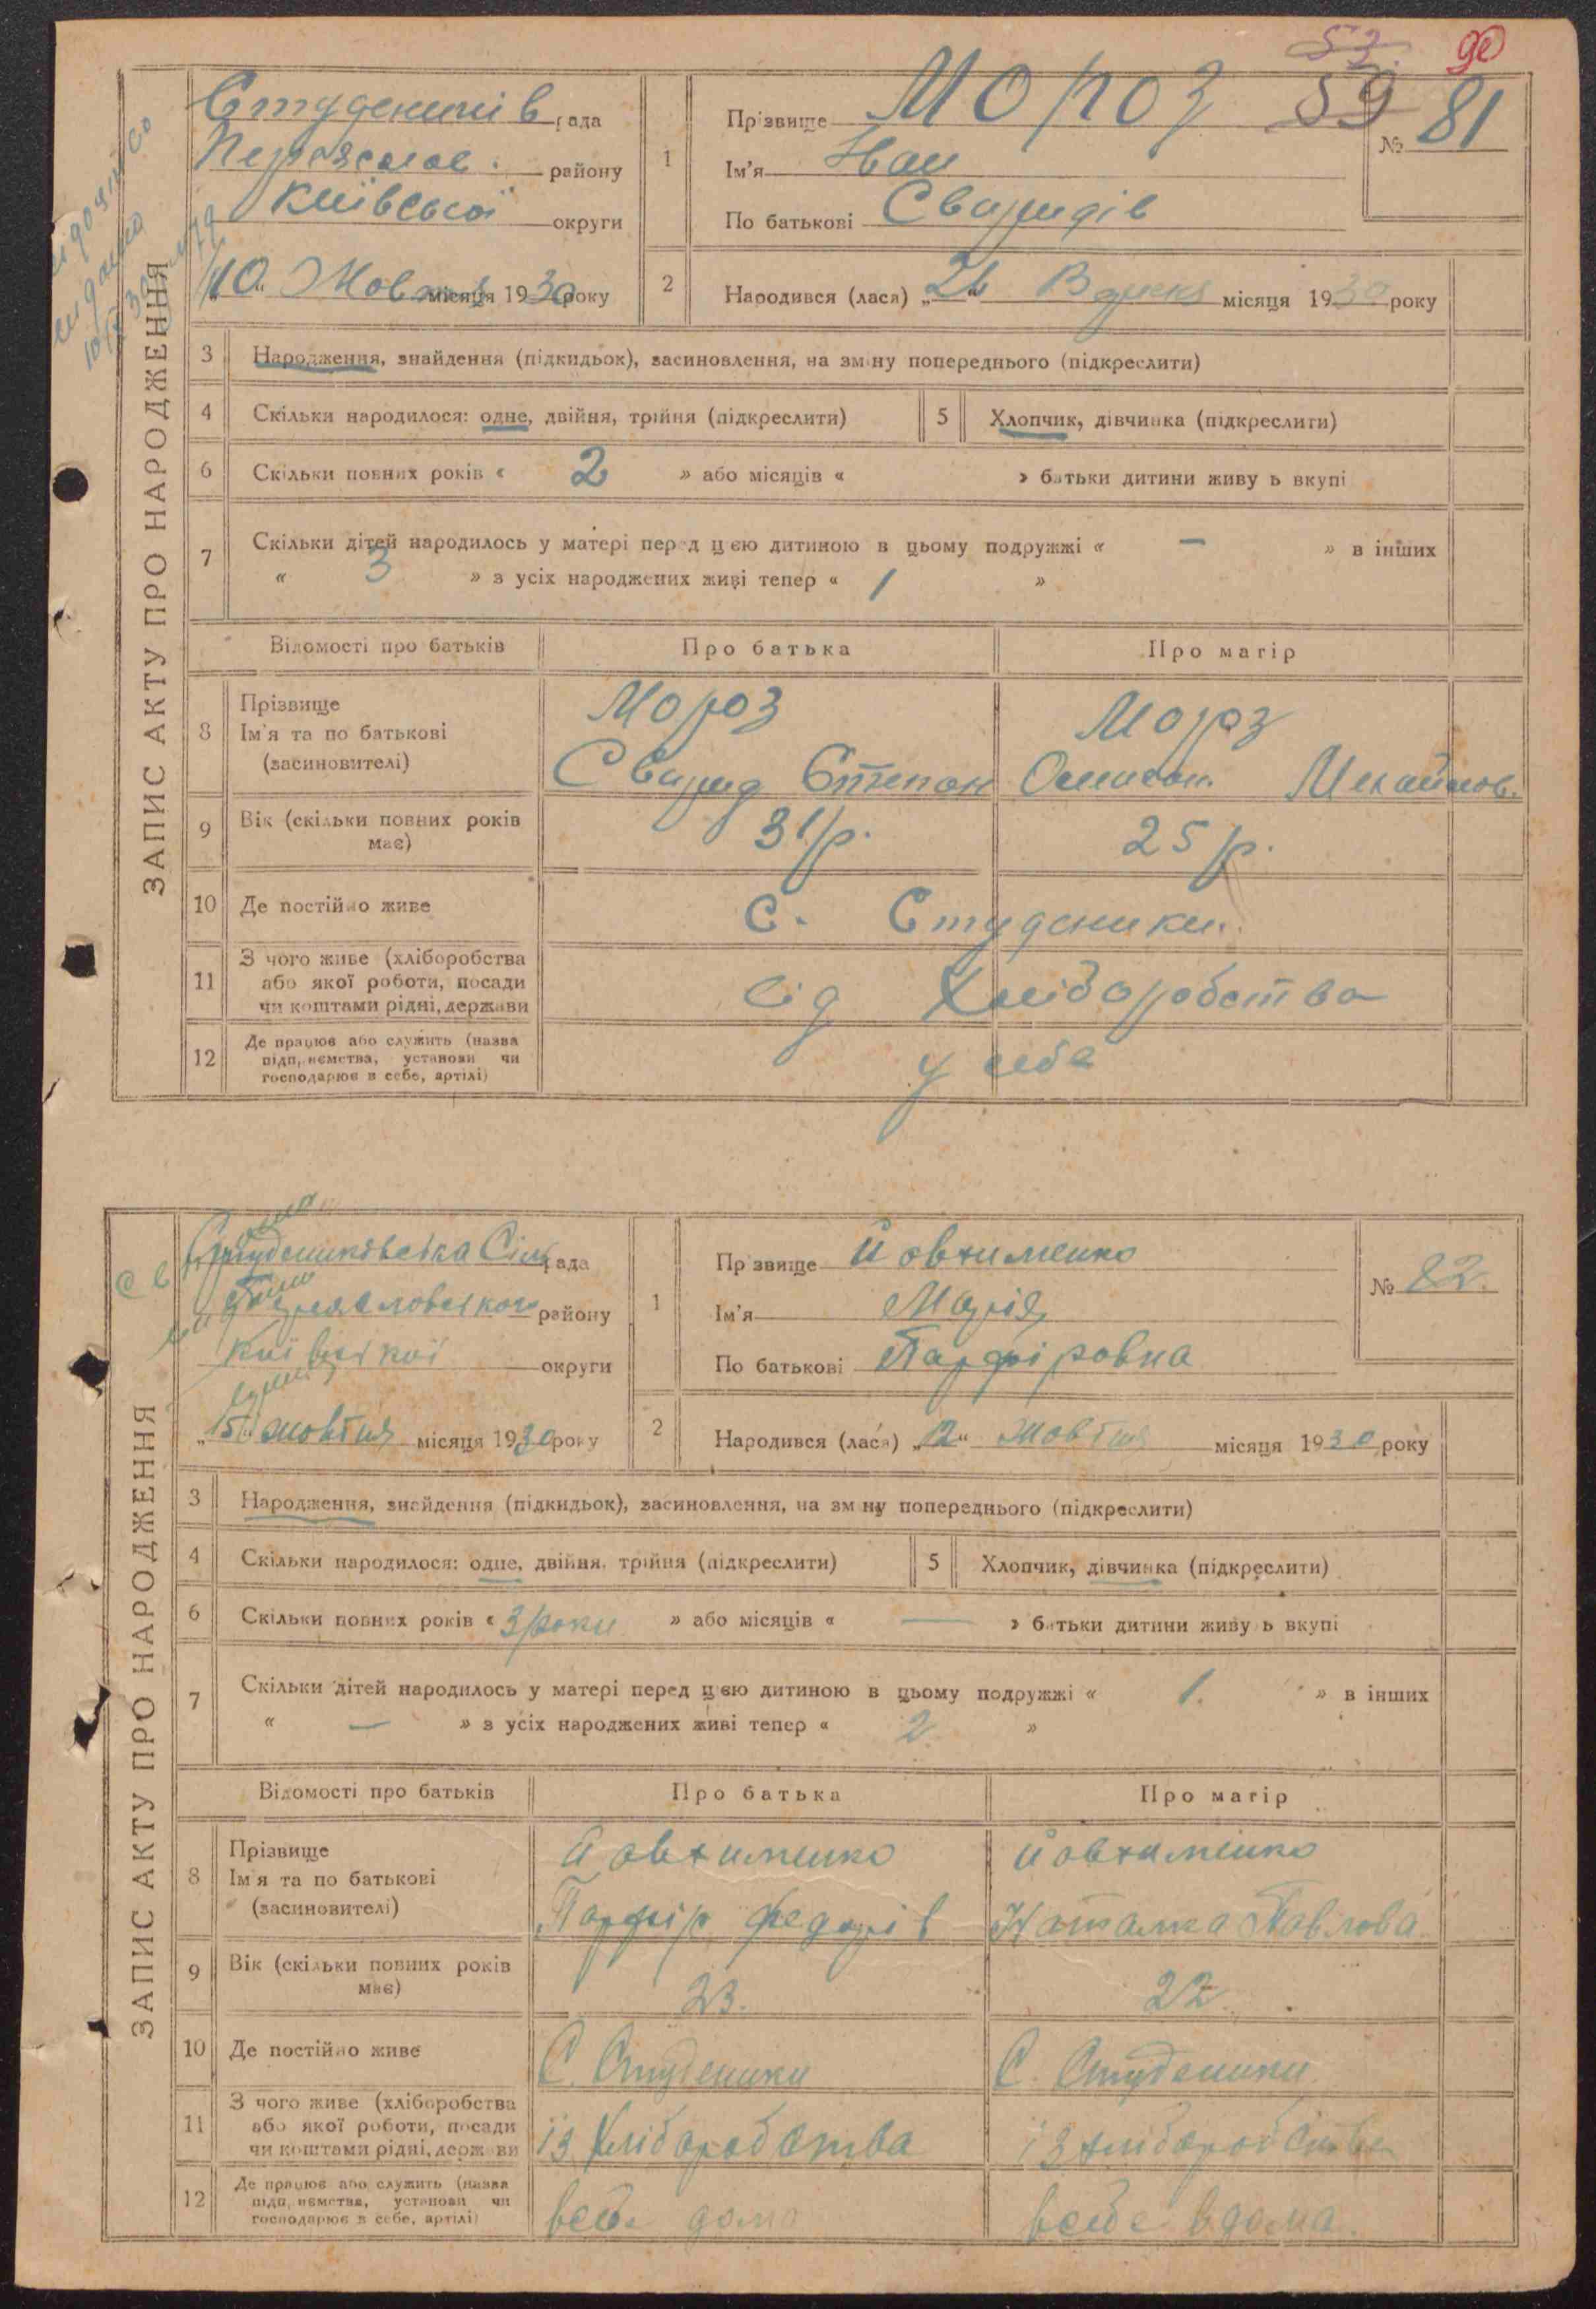 53.
90
59
ЗАПИС АКТУ ПРО НАРОДЖЕННЯ
Студеників рада
Переяслов. району
Київської округи
"10" Жовтня місяця 1930 року
1
Прізвище Мороз
Ім'я Іван
По батькові Свиридів
№ 81
2
Народився (лася) „26" Вересня місяця 1930 року
3 Народження, знайдення (підкидьок), засиновлення, на зміну попереднього (підкреслити)
4 Скільки народилося: одне, двійня, трійня (підкреслити)
5 Хлопчик, дівчинка (підкреслити)
6 Скільки повних років « 2 » або місяців « » батьки дитини живуть вкупі
7 Скільки дітей народилось у матері перед цією дитиною в цьому подружжі « — » в інших
« 3 » з усіх народжених живі тепер « 1 »
Відомості про батьків Про батька Про матір
8 Прізвище
Ім'я та по батькові
(засиновителі)
Мороз
Свирид Степан
Мороз
Михайлов.
9 Вік (скільки повних років
має)
31 р. 25 р.
10 Де постійно живе
с. Студеники.
11 З чого живе (хліборобства
або якої роботи, посади
чи коштами рідні, держави
від Хліборобства
12 Де працює або служить (назва
підприємства, установи чи
господарює в себе, артілі)
у себе
ЗАПИС АКТУ ПРО НАРОДЖЕННЯ
Студениківська Сіль рада
Переяславського району
Київської округи
„15" жовтня місяця 1930 року
1
Прізвище Йовхименко
Ім'я Марія
По батькові Парфіровна
№ 82.
2
Народився (лася) „12" жовтня місяця 1930 року
3 Народження, знайдення (підкидьок), засиновлення, на зміну попереднього (підкреслити)
4 Скільки народилося: одне, двійня, трійня (підкреслити)
5 Хлопчик, дівчинка (підкреслити)
6 Скільки повних років « 3 роки » або місяців « — » батьки дитини живуть вкупі
7 Скільки дітей народилось у матері перед цією дитиною в цьому подружжі « 1. » в інших
« — » з усіх народжених живі тепер « 2 »
Відомості про батьків Про батька Про матір
8 Прізвище
Ім'я та по батькові
(засиновителі)
Йовхименко
Парфір Федорів
Йовхименко
Наталка Павлова
9 Вік (скільки повних років
має)
23. 22.
10 Де постійно живе
С. Студеники С. Студеники
11 З чого живе (хліборобства
або якої роботи, посади
чи коштами рідні, держави
із хліборобства із хліборобства
12 Де працює або служить (назва
підприємства, установи чи
господарює в себе, артілі)
всебе дома всебе вдома.